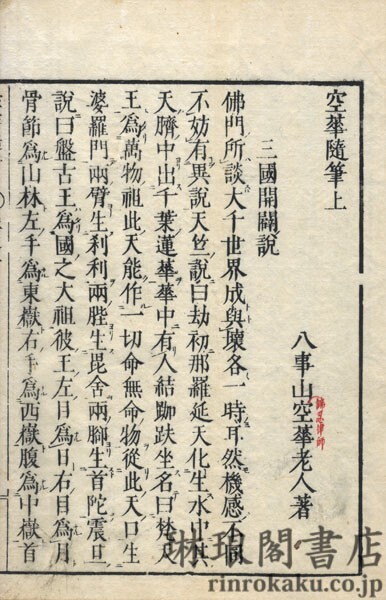 空華隨筆上
八事山空華老人著
諦忍律師
三國開闢說
佛門所談大千世界成與壞各一時耳然機感不同
不妨有異說天竺說曰劫初那羅延天化生水中其
天臍中出千葉蓮華華中有人結跏趺坐名曰梵天
王爲萬物祖此天能作一切命無命物從此天口生
婆羅門兩臂生刹利兩䏶生毘舍兩腳生首陀震旦
說曰盤古王爲國之大祖彼王左目爲日右目爲月
骨節爲山林左手爲東嶽右手爲西嶽腹爲中嶽首
琳琅閣書店
rinrokaku.co.jp